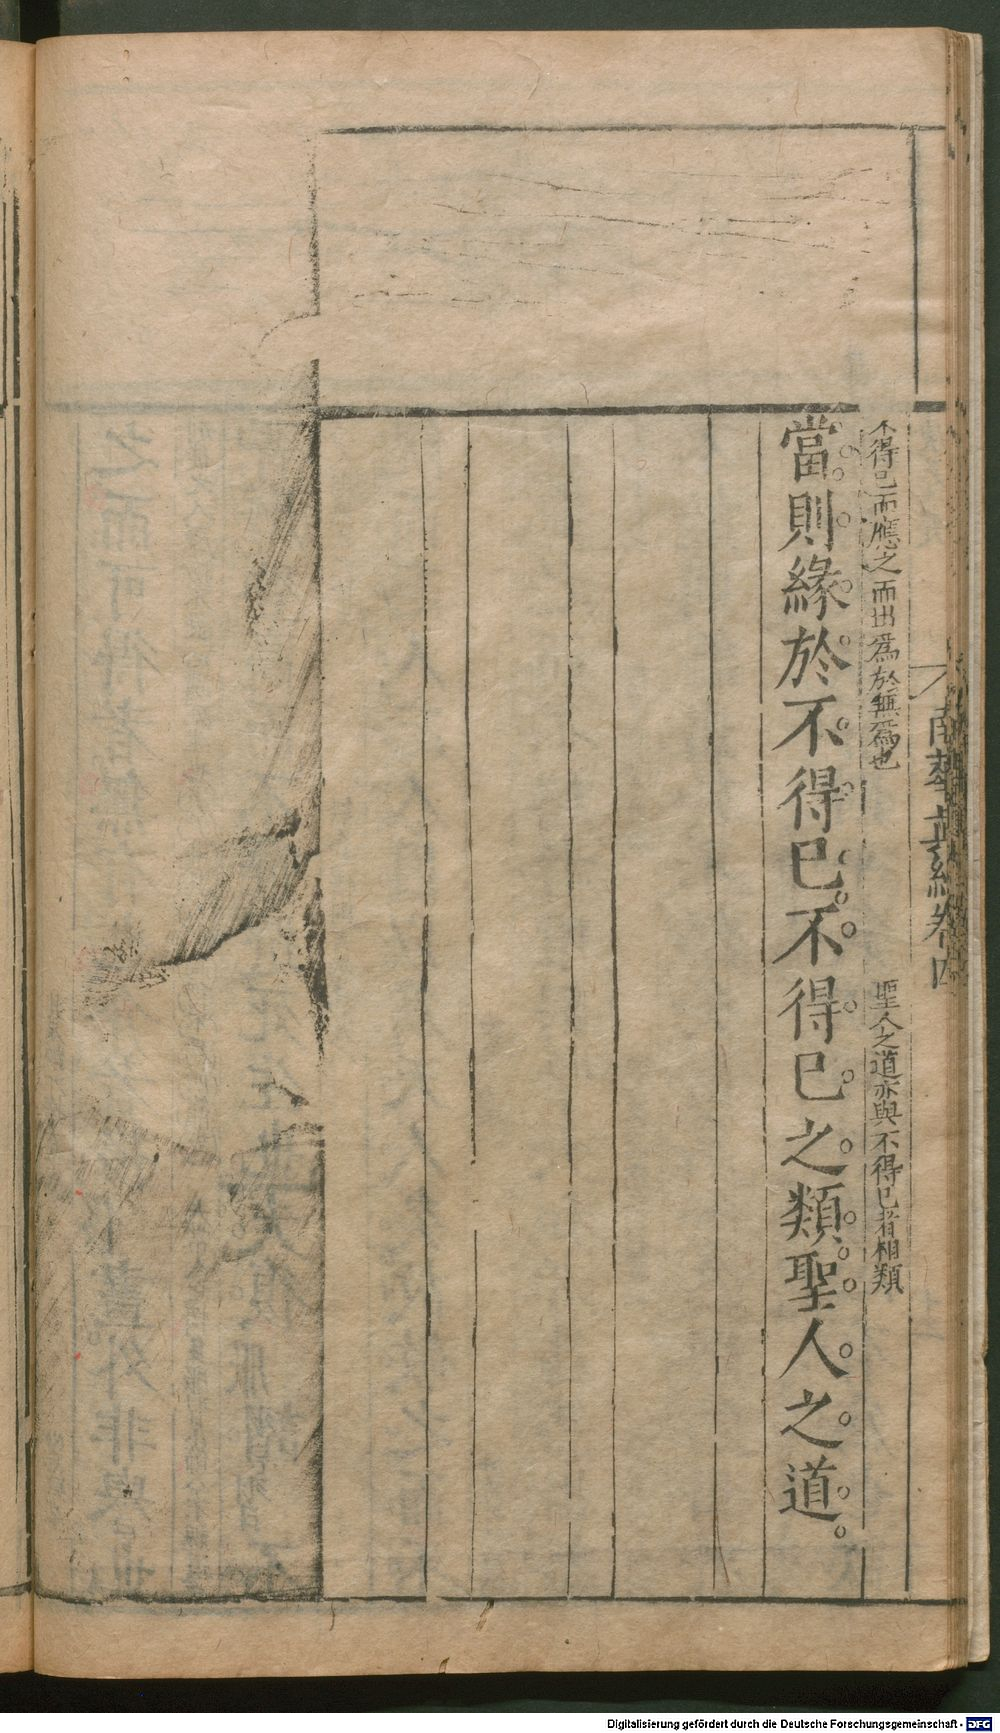 南華真經卷四
不得已而應之而出爲於無爲也
聖人之道亦與不得已者相類
當則緣於不得已。不得已之類聖人之道。
Digitalisierung gefördert durch die Deutsche Forschungsgemeinschaft - DFG